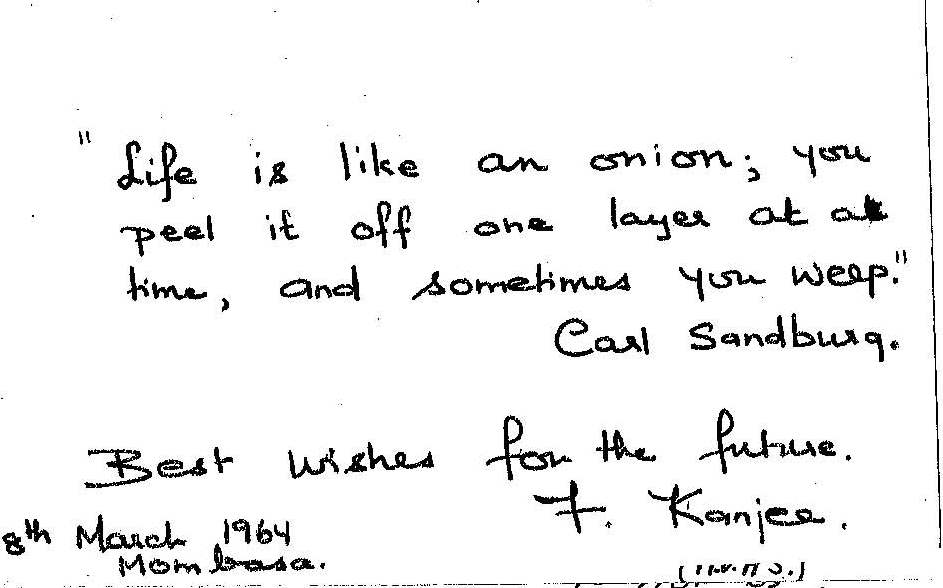 " Life is like an onion; you
peel it off one layer at a
time, and sometimes you weep."
Carl Sandburg.
Best wishes for the future.
F. Kanjee.
8th March 1964
Mombasa.